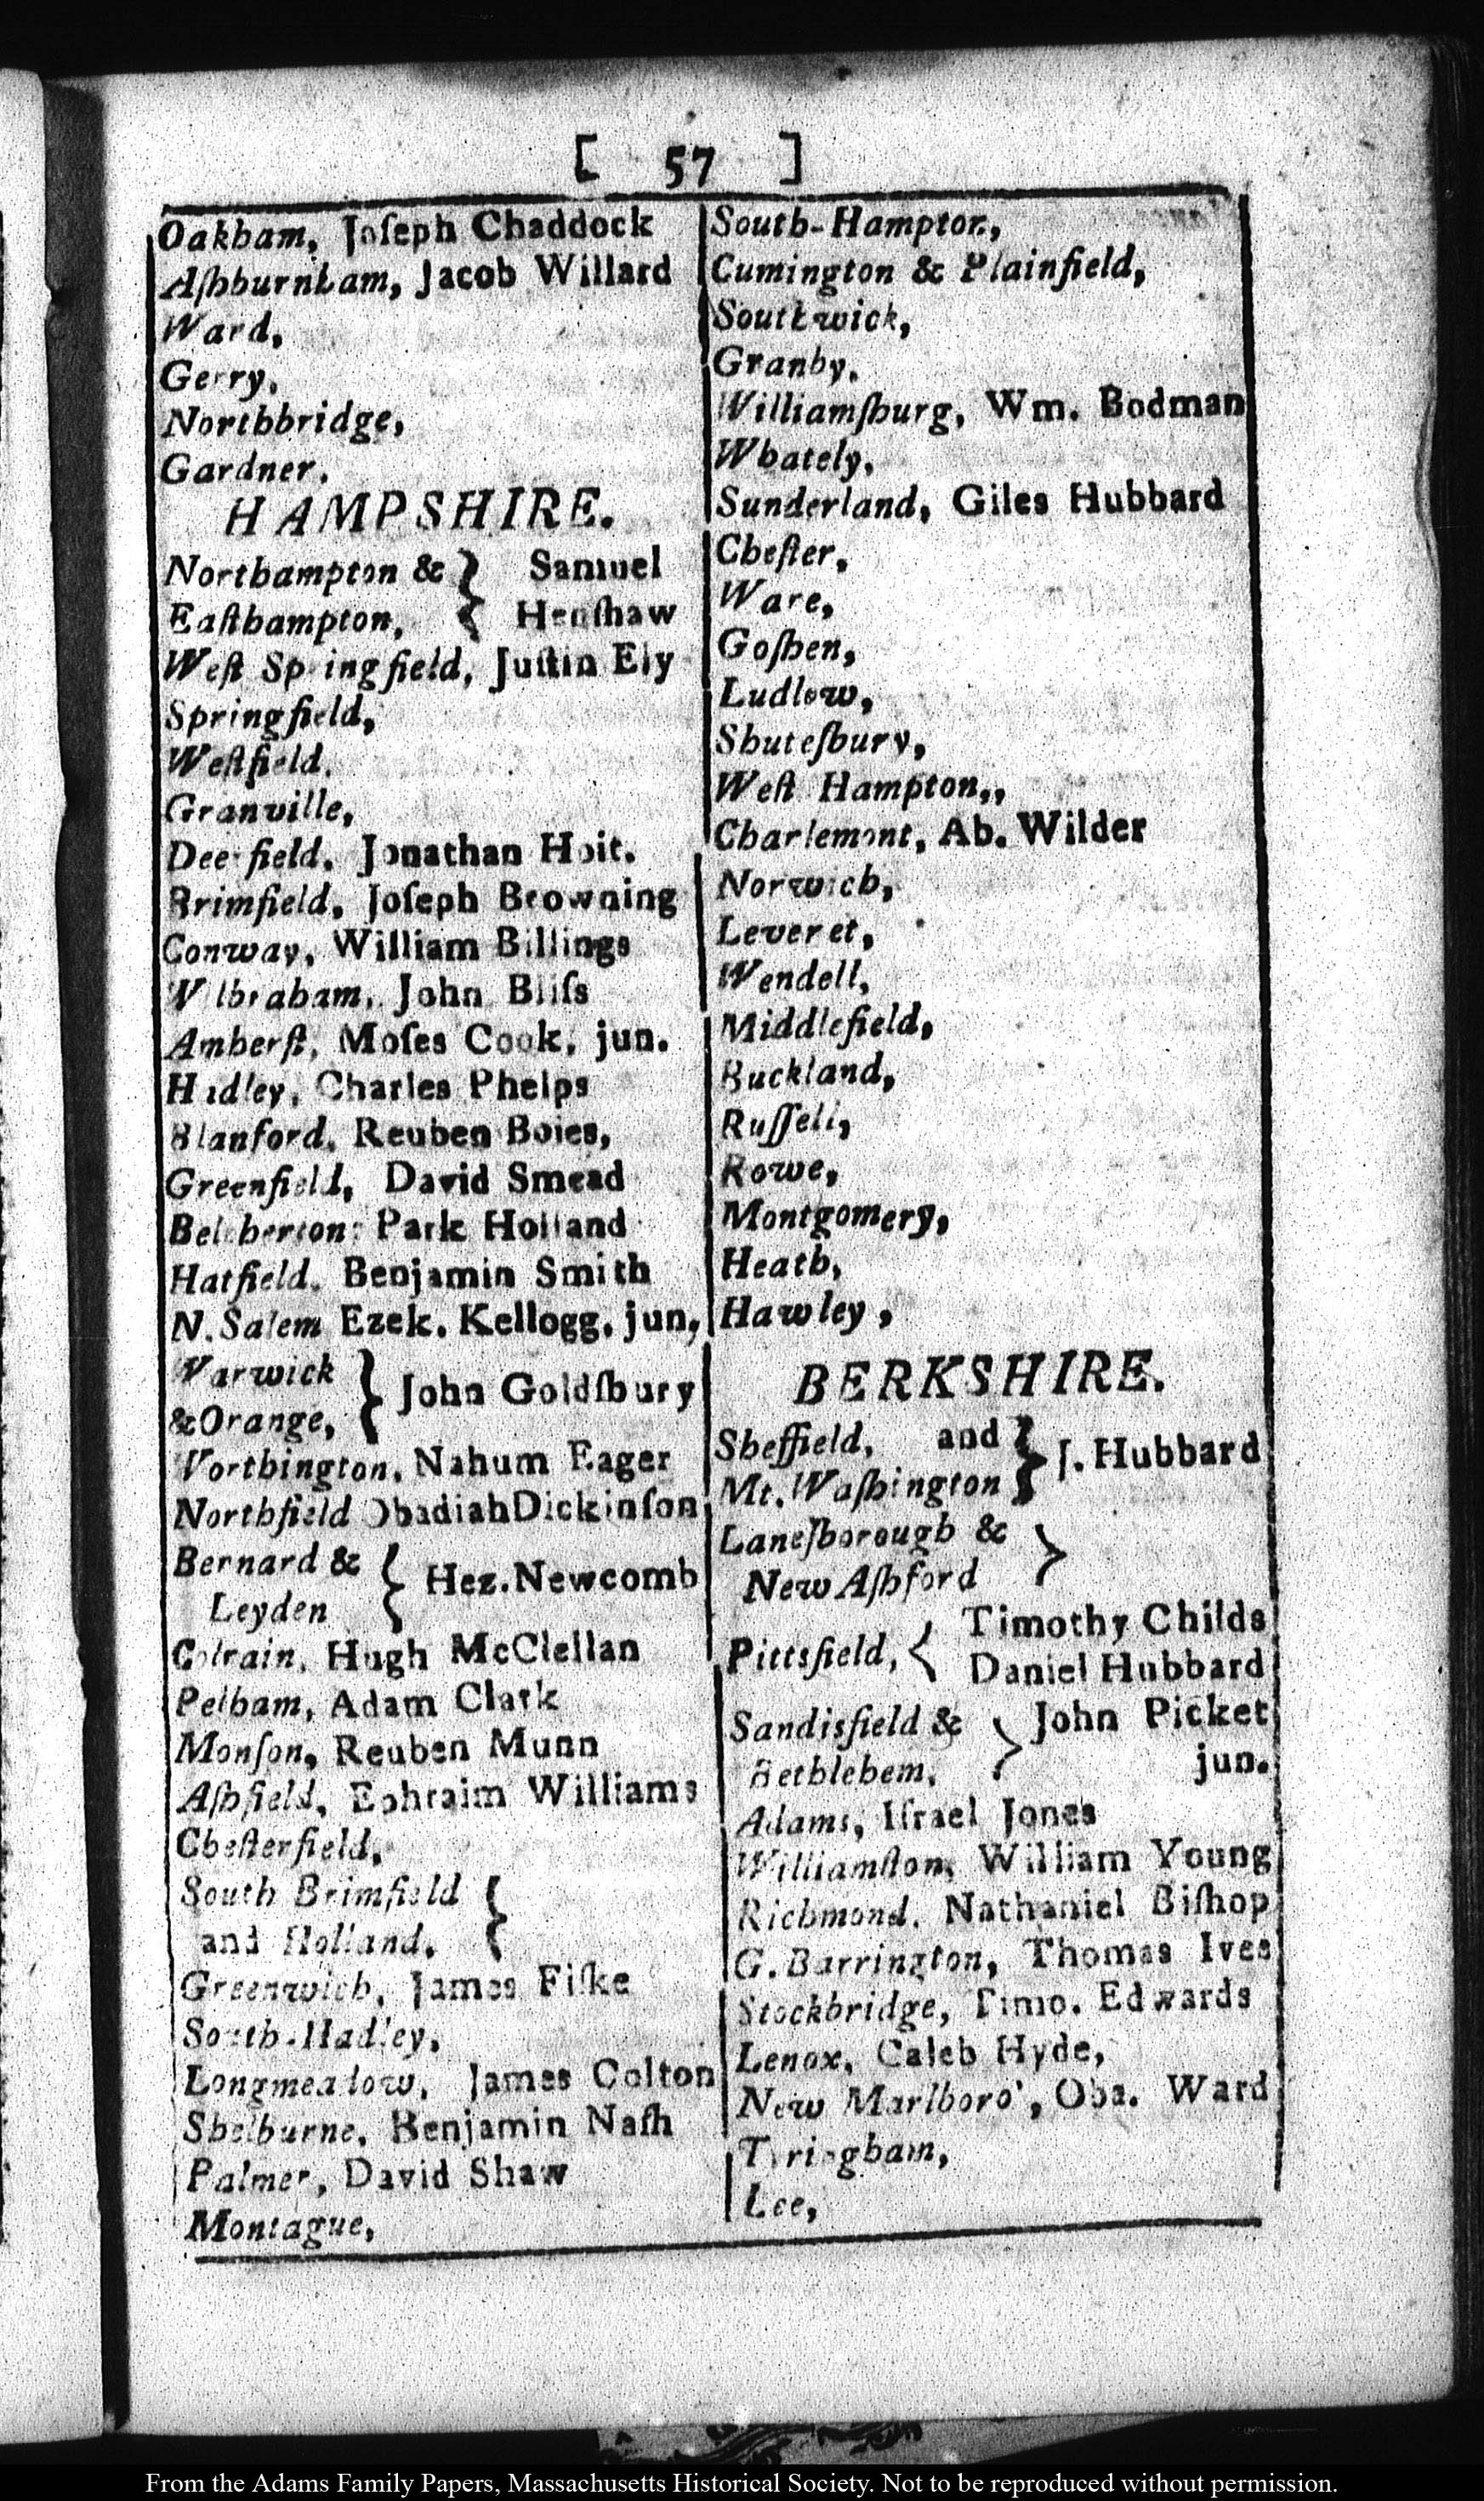 [ 57 ]
Oakham, Joſeph Chaddock
Aſhburnham, Jacob Willard
Ward,
Gerry,
Northbridge,
Gardner,
HAMPSHIRE.
Northampton & } Samuel
Eaſthampton, { Henſhaw
Weſt Springfield, Juſtin Ely
Springfield,
Weſtfield,
Granville,
Deerfield, Jonathan Hoit.
Brimfield, Joſeph Browning
Conway, William Billings
Wilbraham, John Bliſs
Amherſt, Moſes Cook, jun.
Hadley, Charles Phelps
Blanford, Reuben Boies,
Greenfield, David Smead
Belcherton: Park Holland
Hatfield, Benjamin Smith
N. Salem Ezek. Kellogg, jun,
Warwick
&Orange, } John Goldſbury
Worthington, Nahum Eager
Northfield Obadiah Dickinſon
Bernard &
Leyden { Hez. Newcomb
Colrain, Hugh McClellan
Pelham, Adam Clark
Monſon, Reuben Munn
Aſhfield, Ephraim Williams
Cheſterfield,
South Brimfield {
and Holland,
Greenwich, James Fiſke
South-Hadley,
Longmeadow, James Colton
Shelburne, Benjamin Naſh
Palmer, David Shaw
Montague,
South-Hampton,
Cumington & Plainfield,
Southwick,
Granby,
Williamſburg, Wm. Bodman
Whately,
Sunderland, Giles Hubbard
Cheſter,
Ware,
Goſhen,
Ludlow,
Shuteſbury,
Weſt Hampton,,
Charlemont, Ab. Wilder
Norwich,
Leveret,
Wendell,
Middlefield,
Buckland,
Ruſſell,
Rowe,
Montgomery,
Heath,
Hawley,
BERKSHIRE.
Sheffield, and } J. Hubbard
Mt. Waſhington
Laneſborough & }
New Aſhford
Pittsfield, { Timothy Childs
Daniel Hubbard
Sandisfield & } John Picket
Bethlehem, jun.
Adams, Iſrael Jones
Williamſton, William Young
Richmond, Nathaniel Biſhop
G. Barrington, Thomas Ives
Stockbridge, Timo. Edwards
Lenox, Caleb Hyde,
New Marlboro', Oba. Ward
Tyringham,
Lee,
From the Adams Family Papers, Massachusetts Historical Society. Not to be reproduced without permission.